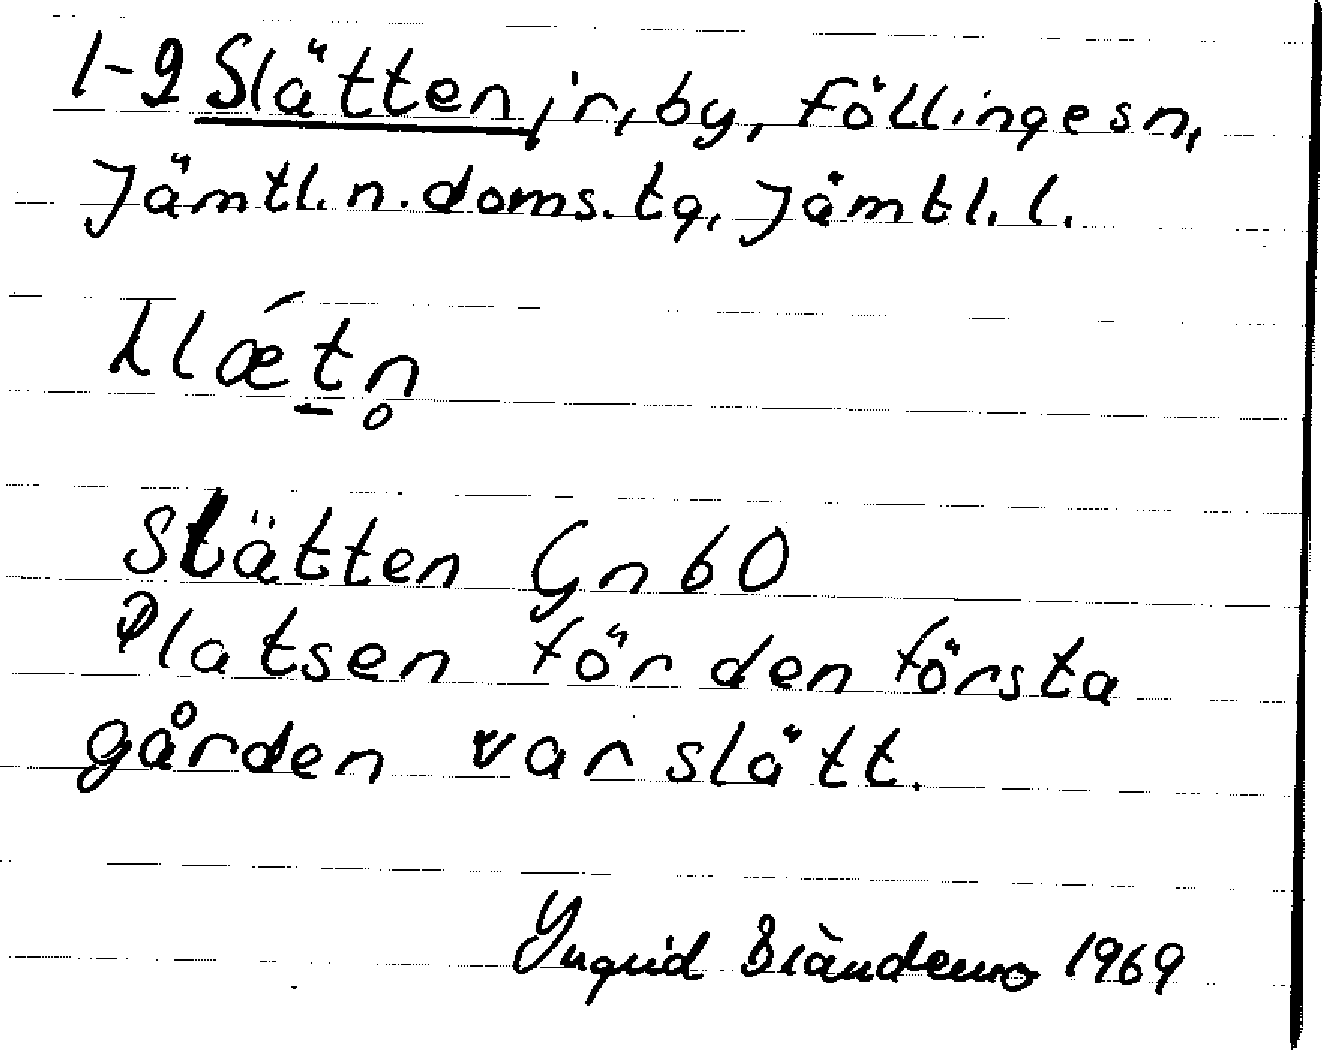 1-2 Slätten, jr, by, Föllinge sn,
Jämtl. n. doms. tg, Jämtl. l.
Slätten Gn 60
Platsen för den första
gården var slätt.
Ingrid Brändemo 1969